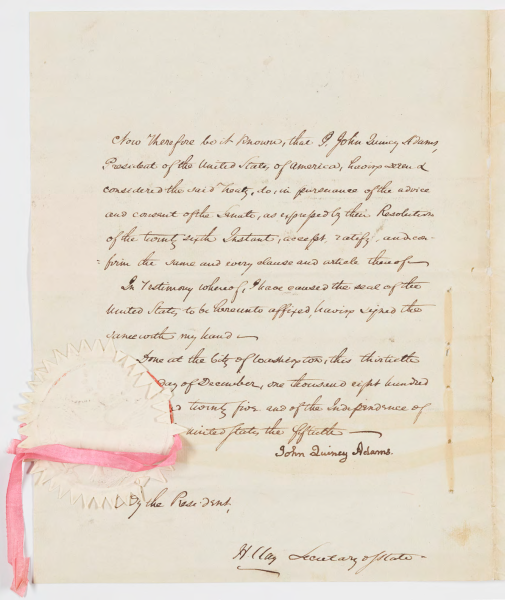 Now Therefore be it Known, that I, John Quincy Adams,
President of the United States of America, having seen &
considered the said Treaty, do, in pursuance of the advice
and consent of the Senate, as expressed by their Resolution
of the twenty sixth Instant, accept, ratify, and con-
-firm the same and every clause and article thereof—
In Testimony whereof, I have caused the seal of the
United States to be hereunto affixed, having signed the
same with my hand—
Done at the City of Washington, this thirtieth
day of December, one thousand eight hundred
twenty five and of the Independence of
United States the fiftieth—
John Quincy Adams.
By the President,
H Clay Secretary of State.